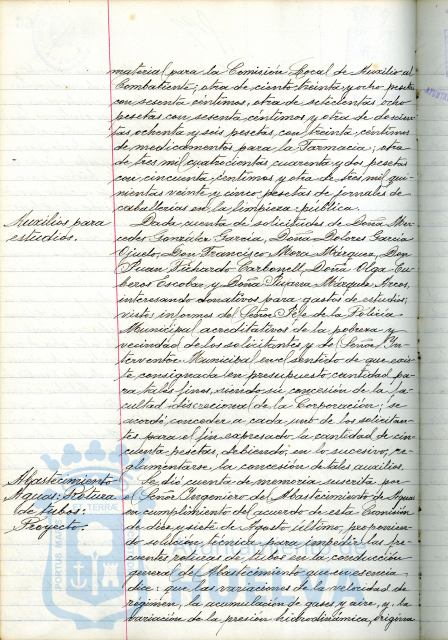 material para la Comisión Local de Auxilio al
Combatiente; otra de ciento treinta y ocho pesetas
con sesenta céntimos; otra de setecientas ocho
pesetas con sesenta céntimos y otra de doscien-
tas ochenta y seis pesetas con treinta céntimos
de medicamentos para la Farmacia; otra
de tres mil cuatrocientas cuarenta y dos pesetas
con cincuenta céntimos y otra de tres mil qui-
nientas veinte y cinco pesetas de jornales de
caballerías en la limpieza pública.
Auxilios para
estudios.
Dada cuenta de solicitudes de Doña Mer-
cedes González García, Doña Dolores García
Don Francisco Mora Márquez, Don
Juan Pichardo Carbonell, Doña Olga
beros Escobar y Doña Márquez
interesando donativos para gastos de estudios;
vistos informes del Señor Jefe de la Policía
Municipal acreditativos de la pobreza y
vecindad de los solicitantes y del Señor In-
terventor Municipal en el sentido de que exis-
te consignada en presupuesto cantidad pa-
ra tales fines, siendo su concesión de la fa-
cultad discrecional de la Corporación; se
acordó conceder a cada uno de los solicitan-
tes para el fin expresado la cantidad de cin-
cuenta pesetas, debiendo, en lo sucesivo, re-
glamentarse la concesión de tales auxilios.
Abastecimiento
Aguas: Rotura
de tubos:
Proyecto.
Se dió cuenta de memoria suscrita por
el Señor Ingeniero del Abastecimiento de Aguas
en cumplimiento del acuerdo de esta Comisión
de diez y siete de Agosto último, proponien-
do solución técnica para impedir las fre-
cuentes roturas de tubos en la conducción
general de Abastecimiento que en esencia
dice: que las variaciones de la velocidad de
régimen, la acumulación de gases y aire, y la
variación de la presión hidrodinámica, origina